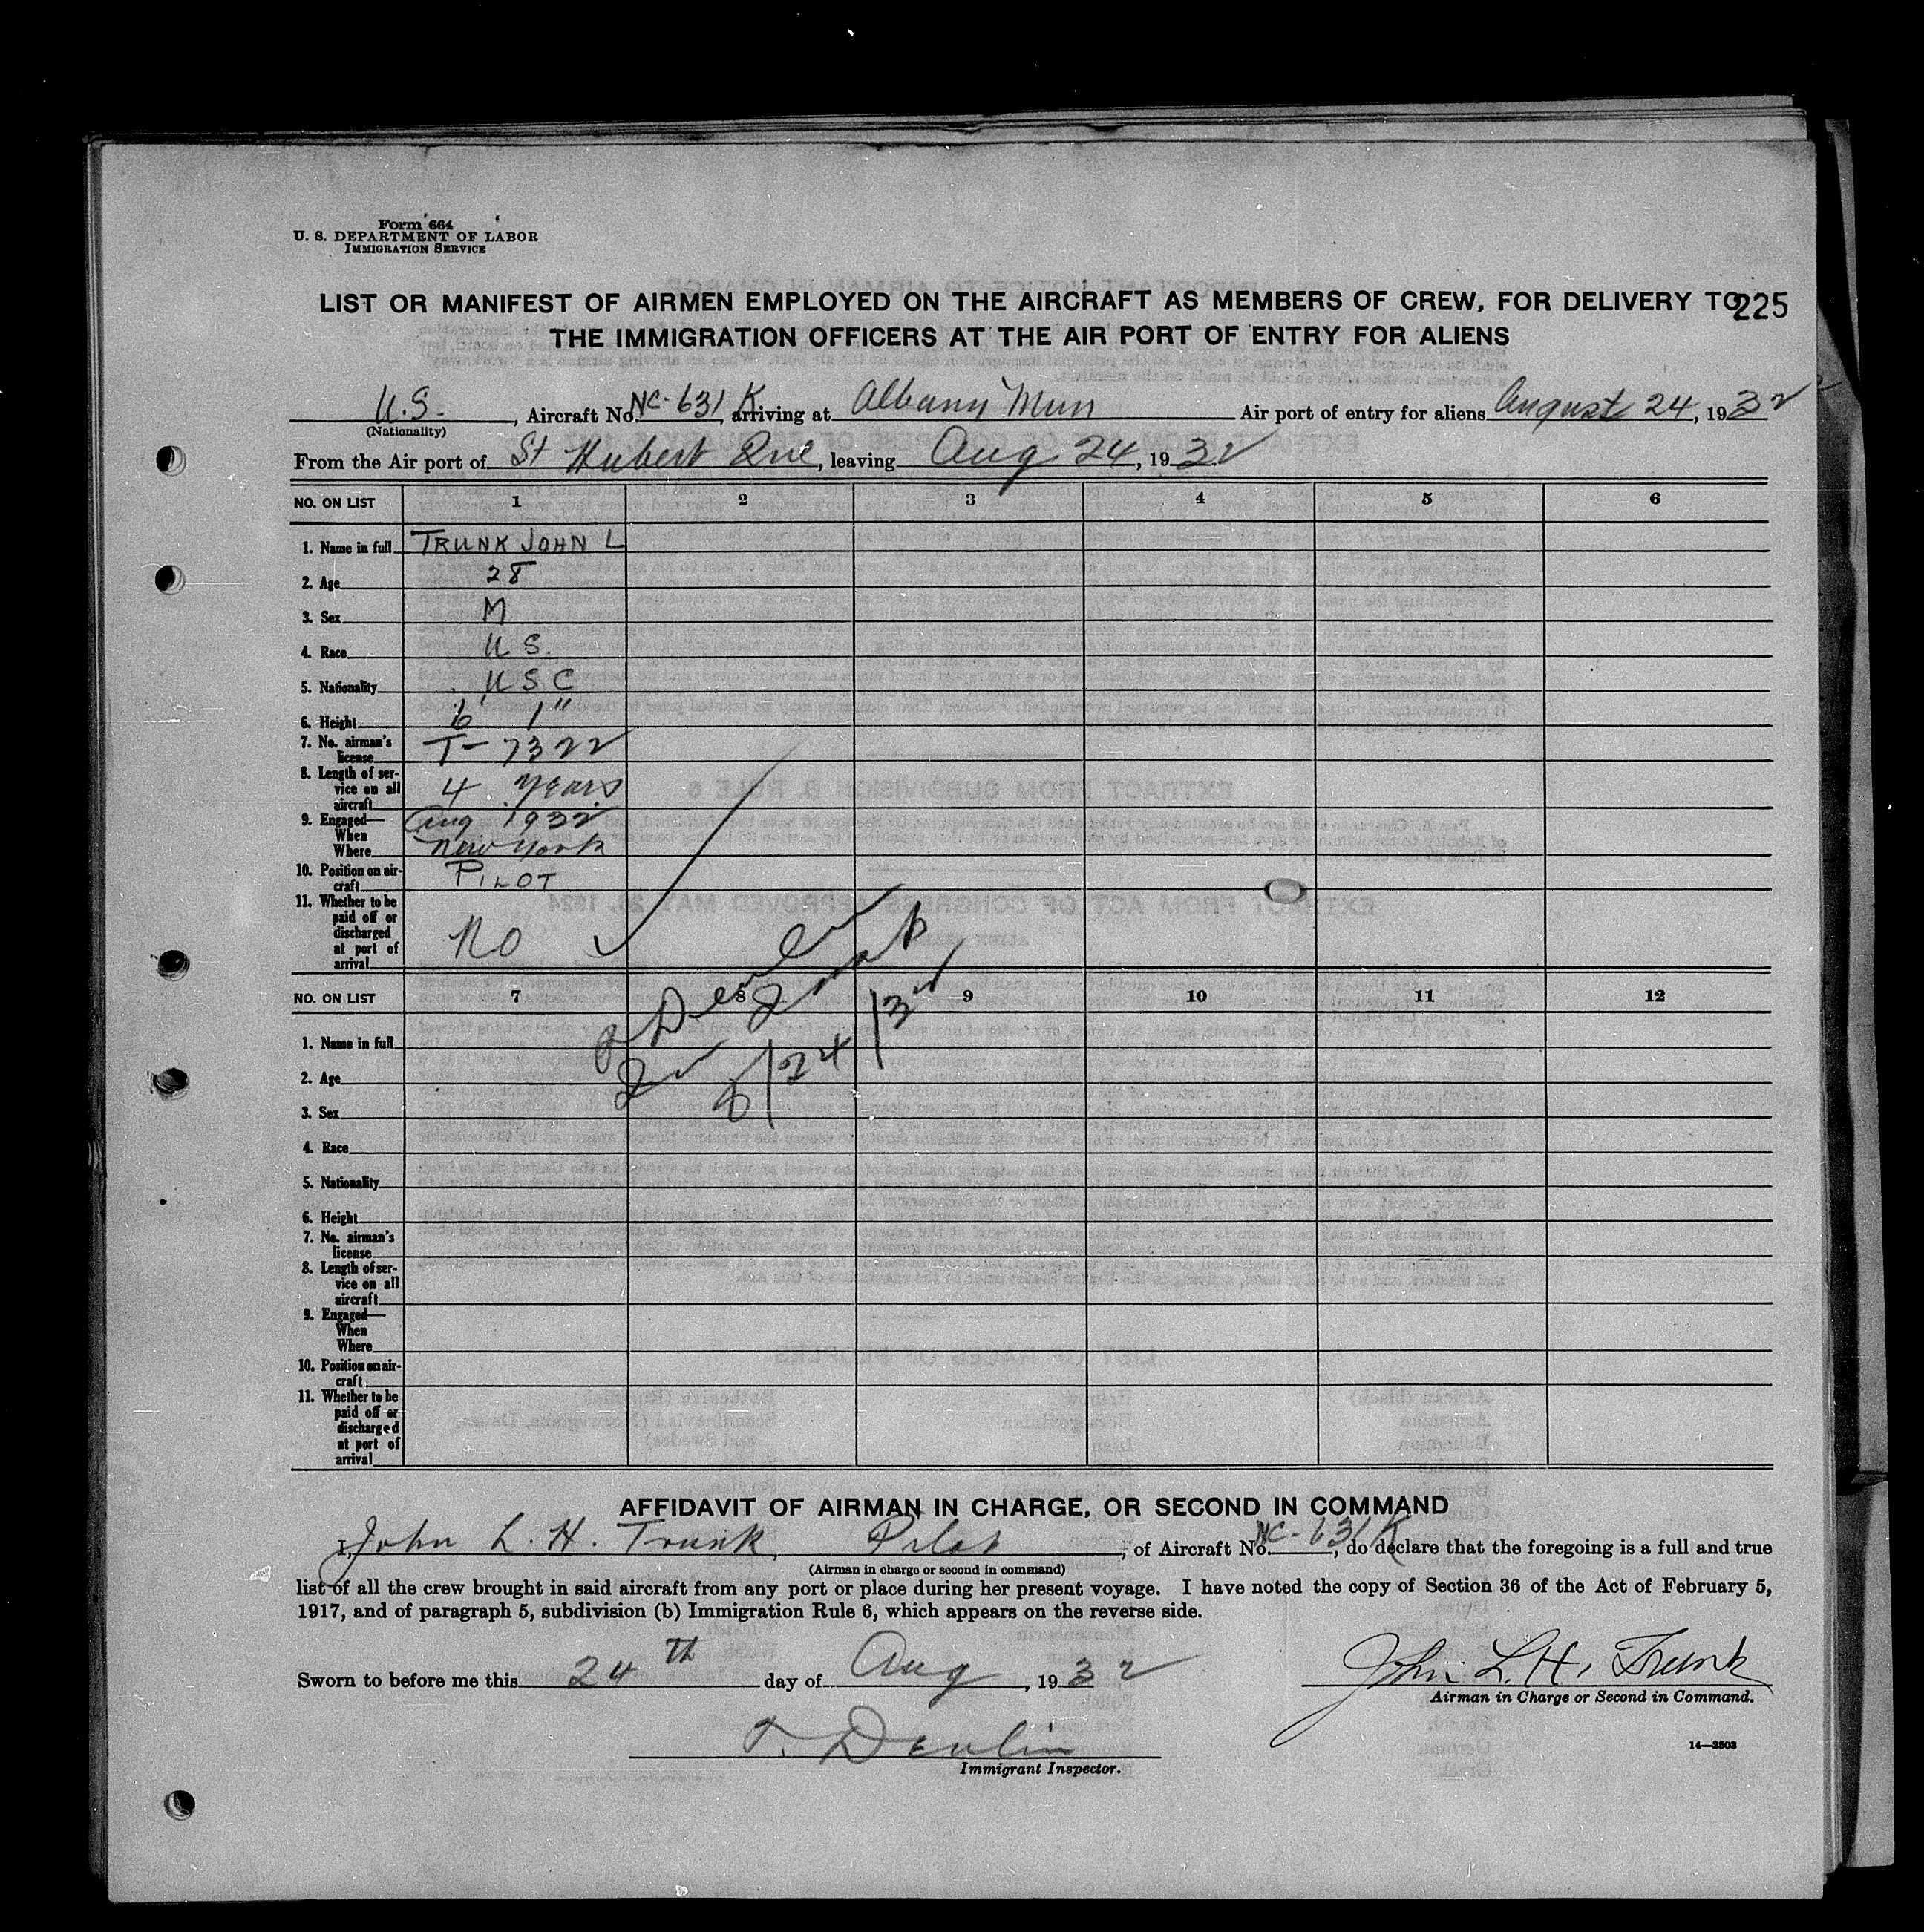 Form 664
U. S. DEPARTMENT OF LABOR
IMMIGRATION SERVICE
LIST OR MANIFEST OF AIRMEN EMPLOYED ON THE AIRCRAFT AS MEMBERS OF CREW, FOR DELIVERY TO 225
THE IMMIGRATION OFFICERS AT THE AIR PORT OF ENTRY FOR ALIENS
U.S., Aircraft No. NC-631K, arriving at Albany Mun Air port of entry for aliens August 24, 1932
(Nationality)
From the Air port of St Hubert Que, leaving Aug 24, 1932
NO. ON LIST 1 2 3 4 5 6
1. Name in full TRUNK JOHN L
2. Age 28
3. Sex M
4. Race U S.
5. Nationality U S C
6. Height 6' 1"
7. No. airman's
license T-7322
8. Length of ser-
vice on all
aircraft 4 years
9. Engaged—
When Aug 1932
Where New York
10. Position on air-
craft PILOT
11. Whether to be
paid off or
discharged
at port of
arrival NO
NO. ON LIST 7 8 9 10 11 12
8/24/32
1. Name in full
2. Age
3. Sex
4. Race
5. Nationality
6. Height
7. No. airman's
license
8. Length of ser-
vice on all
aircraft
9. Engaged—
When
Where
10. Position on air-
craft
11. Whether to be
paid off or
discharged
at port of
arrival
AFFIDAVIT OF AIRMAN IN CHARGE, OR SECOND IN COMMAND
I, John L. H. Trunk, Pilot, of Aircraft No. NC-631K, do declare that the foregoing is a full and true
(Airman in charge or second in command)
list of all the crew brought in said aircraft from any port or place during her present voyage. I have noted the copy of Section 36 of the Act of February 5,
1917, and of paragraph 5, subdivision (b) Immigration Rule 6, which appears on the reverse side.
Sworn to before me this 24th day of Aug, 1932 John L. H. Trunk
Airman in Charge or Second in Command.
T. Devlin
14—2503
Immigrant Inspector.